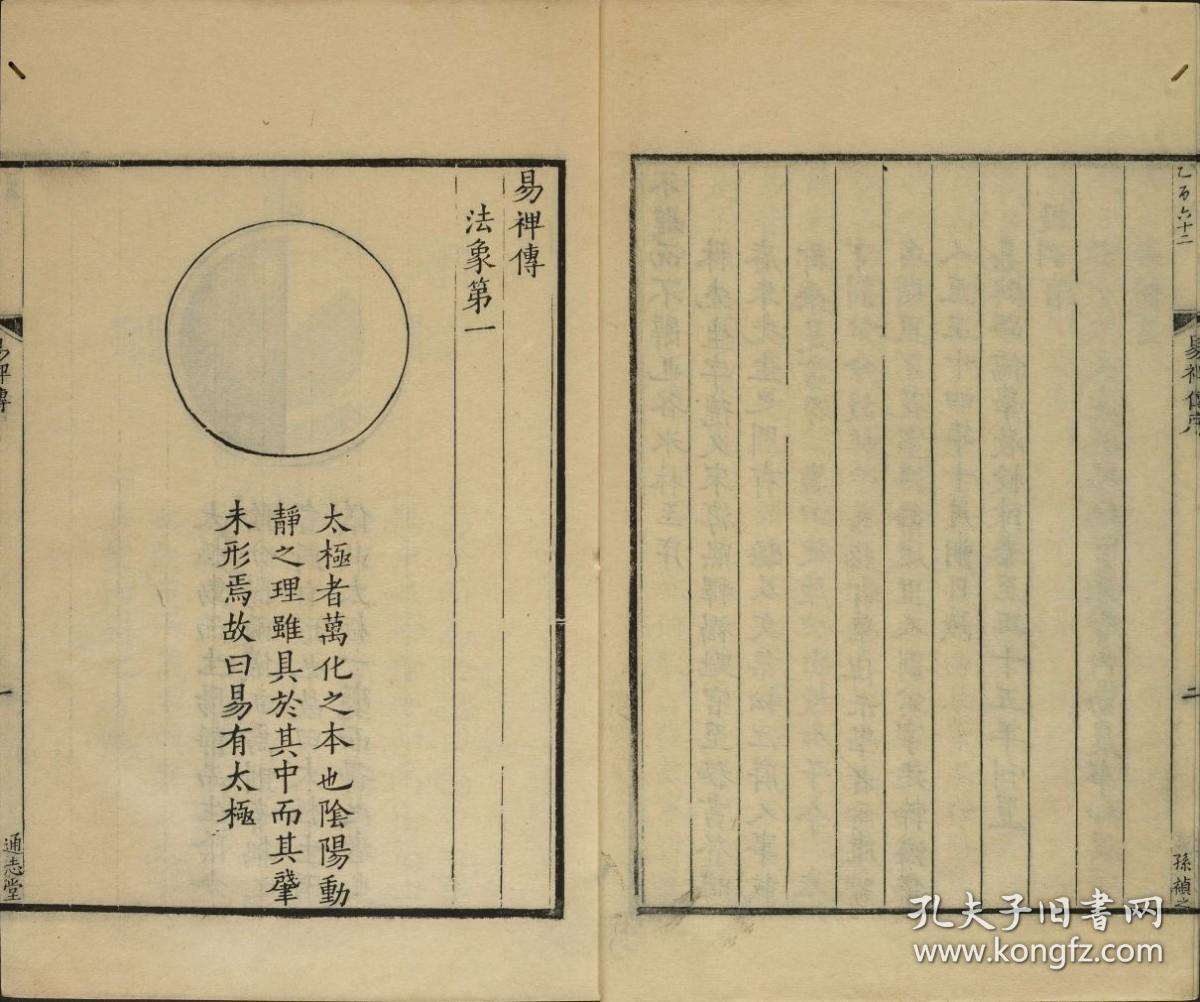 乙百六十二
易裨傳序
二
孫禎之
易裨傳
法象第一
太極者萬化之本也陰陽動
靜之理雖具於其中而其肇
未形焉故曰易有太極
易裨傳
一
通志堂
孔夫子旧书网
www.kongfz.com